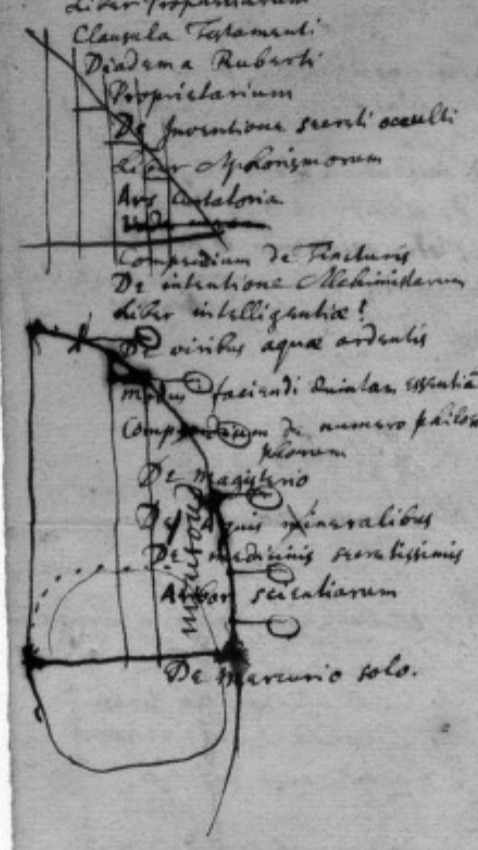 Liber Proprietarium
Clausula Testamenti
Diadema Ruberti
Proprietarium
De Inventione secreti occulti
Liber Aphorismorum
Ars
Compendium de Tincturis
De intentione Alchimistarum
Liber intelligentiæ!
De viribus aquæ ardentis
modus faciendi Quintam essentiã
Compendium de numero philoso
phorum
De magisterio
De Aquis mineralibus
De medicinis secretissimis
Arbor scientiarum
De Mercurio solo.